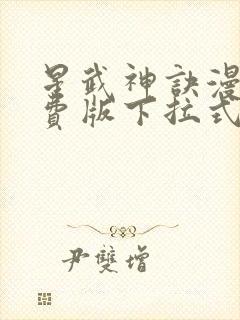 星武神訣漫
費版下拉式
尹雙增